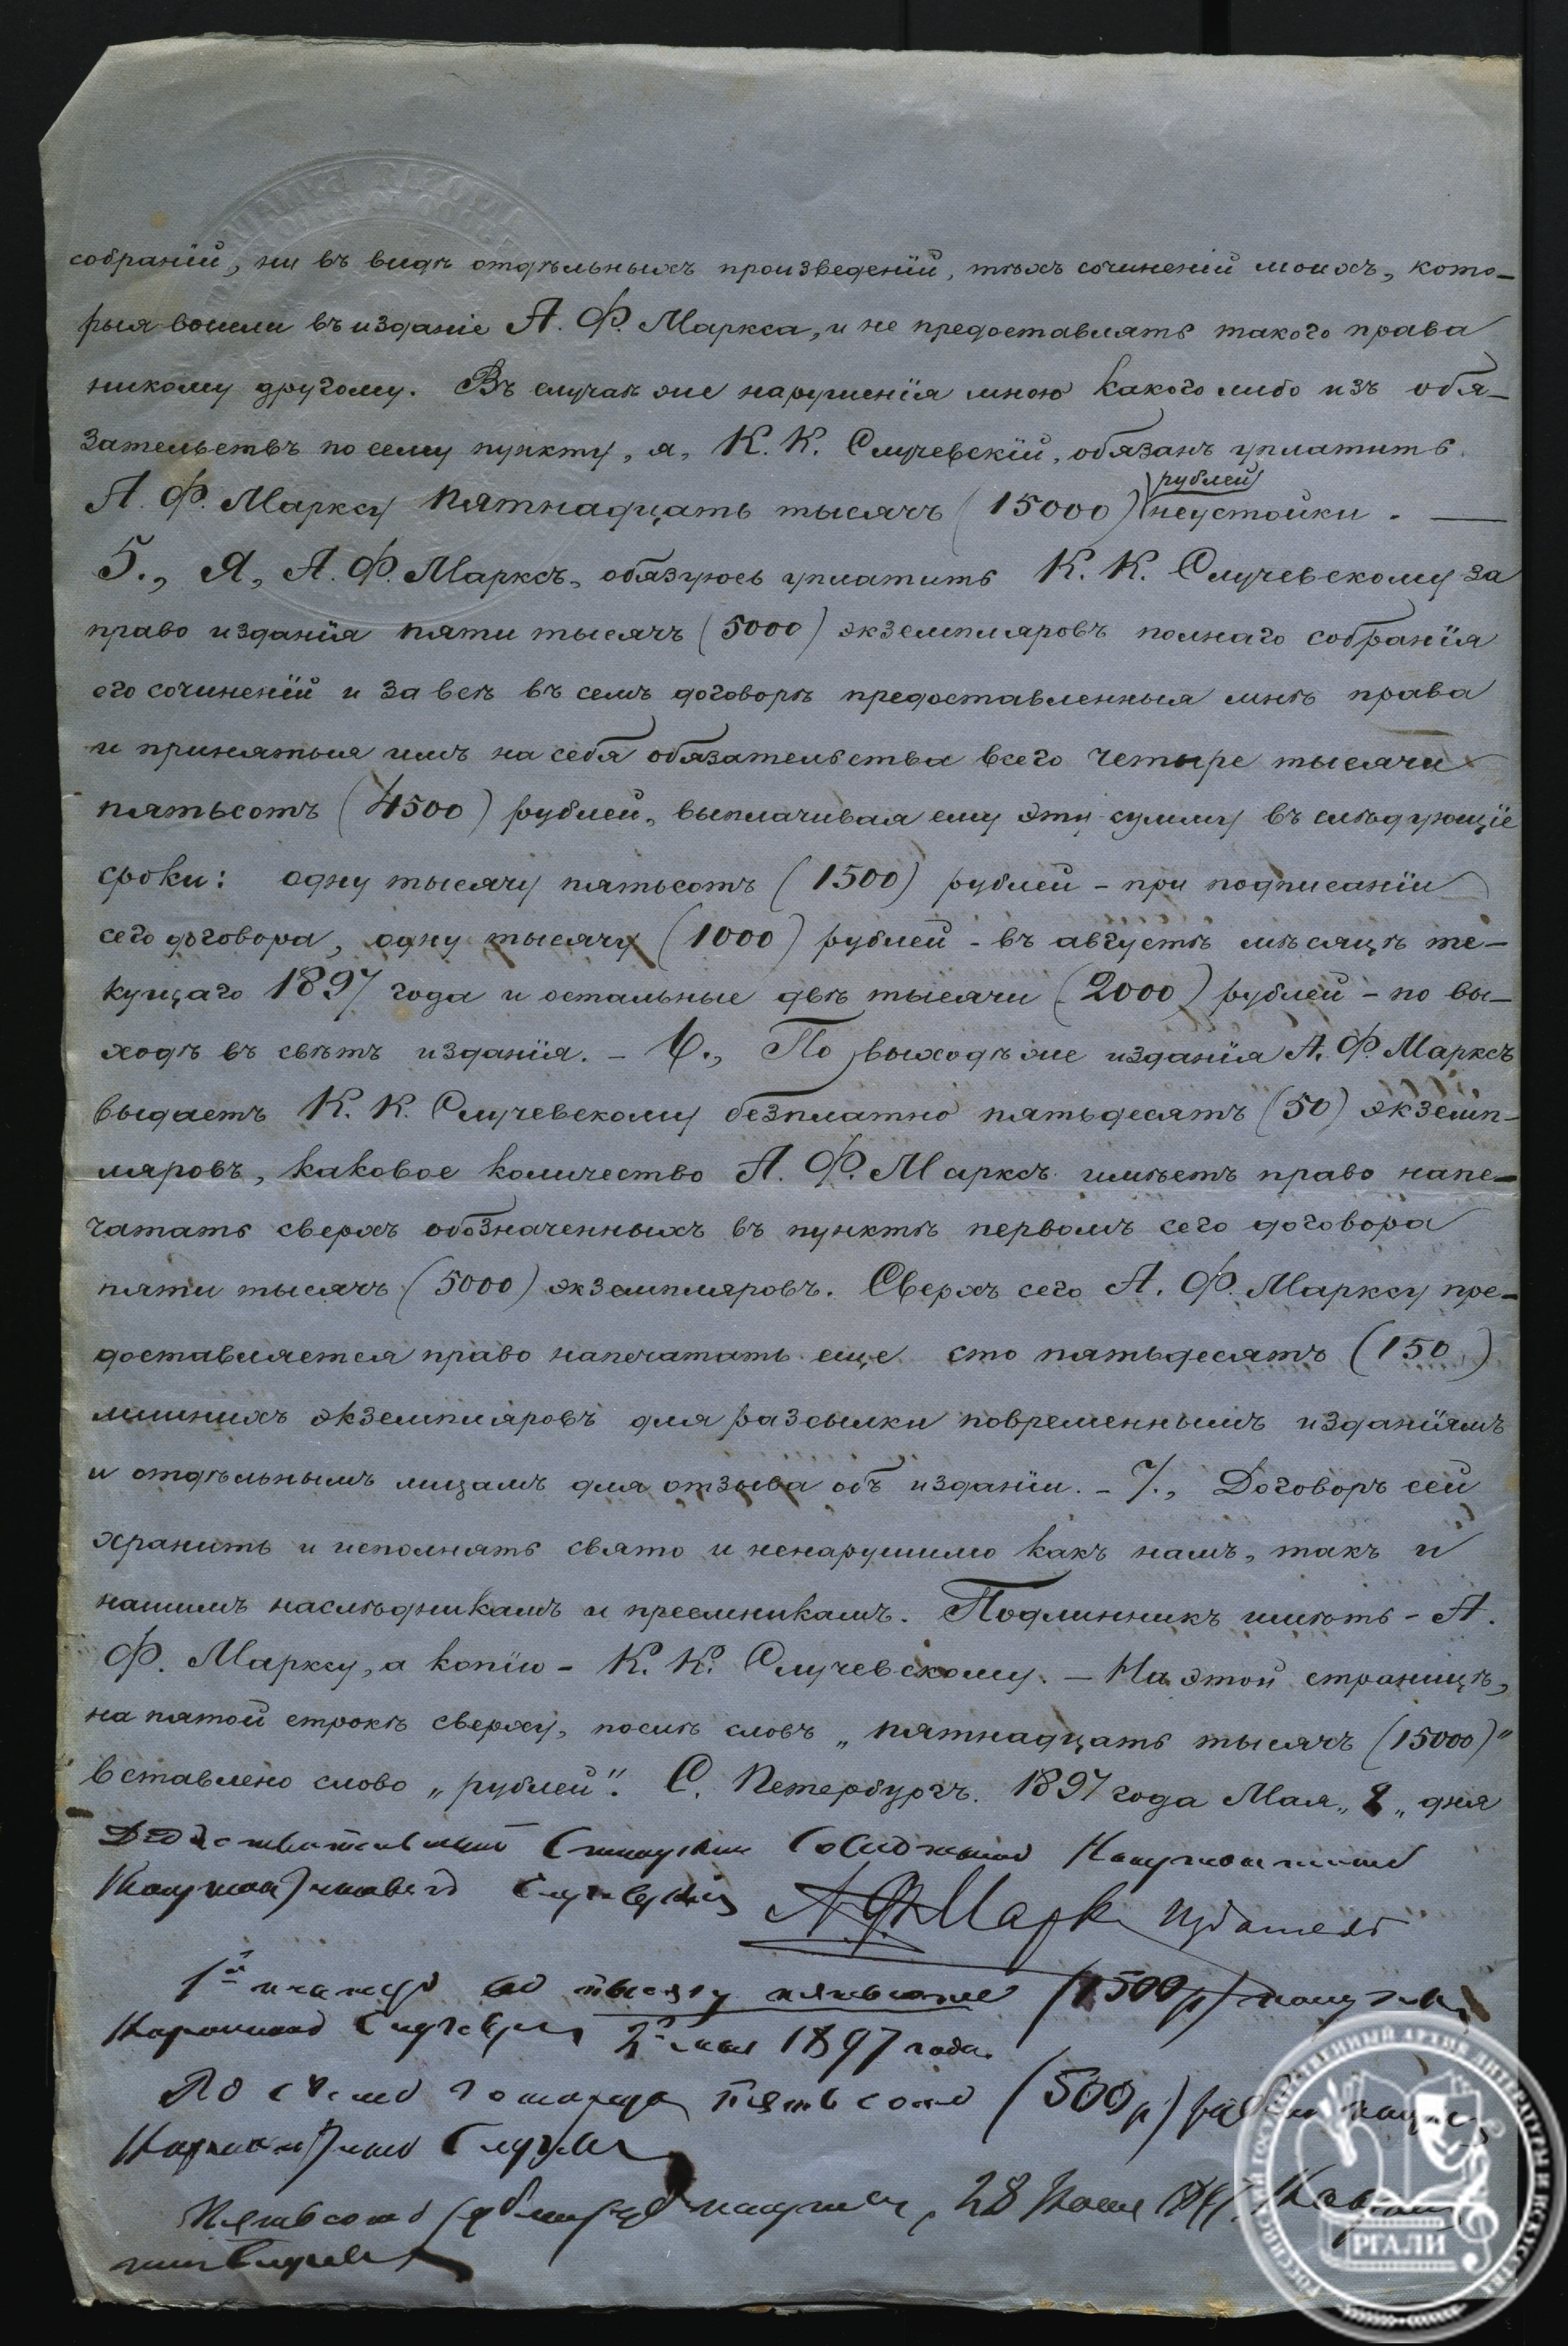 собраній, ни въ видѣ отдѣльныхъ произведеній, тѣхъ сочиненій моихъ, кото-
рыя вошли въ изданіе А. Ф. Маркса, и не предоставлять такого права
никому другому. Въ случаѣ же нарушенія мною какого либо изъ обя-
зательствъ по сему пункту, я, К. К. Случевскій, обязанъ уплатить
рублей
А. Ф. Марксу пятнадцать тысячъ (15000) неустойки. —
5., Я, А. Ф. Марксъ, обязуюсь уплатить К. К. Случевскому за
право изданія пяти тысячъ (5000) экземпляровъ полнаго собранія
его сочиненій и за всѣ въ семъ договорѣ предоставленныя мнѣ права
и принятыя имъ на себя обязательства всего четыре тысячи
пятьсотъ (4500) рублей, выплачивая ему эту сумму въ слѣдующіе
сроки: одну тысячу пятьсотъ (1500) рублей - при подписаніи
сего договора, одну тысячу (1000) рублей - въ августѣ мѣсяцѣ те-
кущаго 1897 года и остальные двѣ тысячи (2000) рублей - по вы-
ходѣ въ свѣтъ изданія. - 6., По выходѣ же изданія А. Ф. Марксъ
выдаетъ К. К. Случевскому безплатно пятьдесятъ (50) экземп-
ляровъ, каковое количество А. Ф. Марксъ имѣетъ право напе-
чатать сверхъ обозначенныхъ въ пунктѣ первомъ сего договора
пяти тысячъ (5000) экземпляровъ. Сверхъ сего А. Ф. Марксу пре-
доставляется право напечатать еще сто пятьдесятъ (150)
лишнихъ экземпляровъ для разсылки повременнымъ изданіямъ
и отдѣльнымъ лицамъ для отзыва объ изданіи. - 7., Договоръ сей
хранить и исполнять свято и ненарушимо какъ намъ, такъ и
нашимъ наслѣдникамъ и преемникамъ. Подлинникъ имѣть - А.
Ф. Марксу, а копію - К. К. Случевскому. - На этой страницѣ,
на пятой строкѣ сверху, послѣ словъ „пятнадцать тысячъ (15000)"
вставлено слово „рублей". С. Петербургъ. 1897 года Мая „2„ дня
Дѣйствительный Статскій Совѣтникъ Константинъ
Константиновъ Случевскій А. Ф. Марксъ издатель
1й тысячу пятьсотъ (1500 р) получилъ
Случевскій 2го мая 1897 года.
По пятьсотъ (500 р)
Случевскій
Пятьсотъ рублей получилъ, 28
Случевскій
РОССИЙСКИЙ ГОСУДАРСТВЕННЫЙ АРХИВ ЛИТЕРАТУРЫ И ИСКУССТВА
РГАЛИ